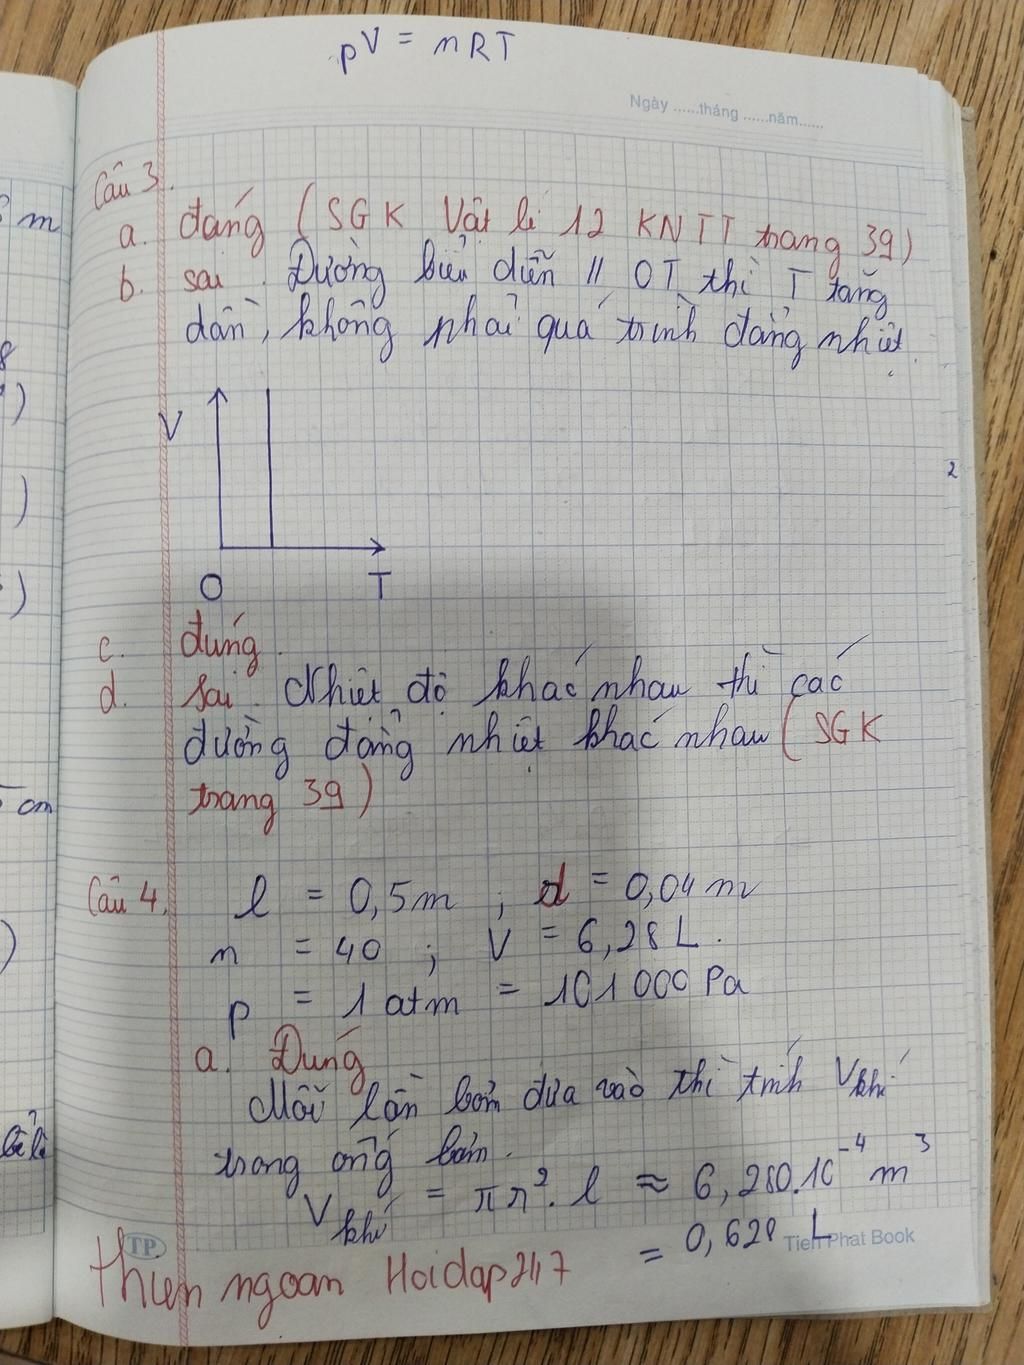 pV = nRT
Ngày ......tháng ......năm......
Câu 3.
a. đúng (SGK Vật lí 12 KNTT trang 39)
b. sai. Đường biểu diễn // OT thì T tăng
dần, không phải quá trình đẳng nhiệt.
V
2
O T
c. đúng.
d. sai. Nhiệt độ khác nhau thì các
đường đẳng nhiệt khác nhau (SGK
trang 39)
Câu 4. l = 0,5m ; d = 0,04m
n = 40 ; V = 6,28L.
p = 1 atm = 101000 Pa
a. Đúng
Mỗi lần bơm đưa vào thì tính Vkhí
trong ống bơm.
Vkhí = πr². l ≈ 6,280.10⁻⁴ m³
= 0,628 L
TP Tien Phat Book
thien ngoan Hoidap247
m
8
)
)
)
cm
)